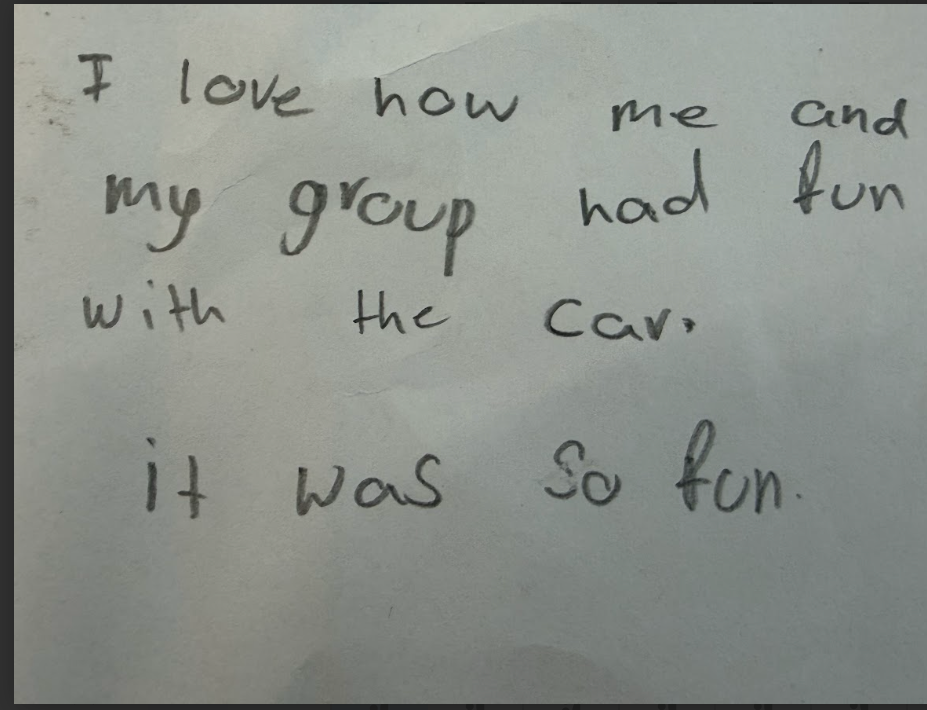 I love how me and
my group had fun
with the car.
it was so fun.